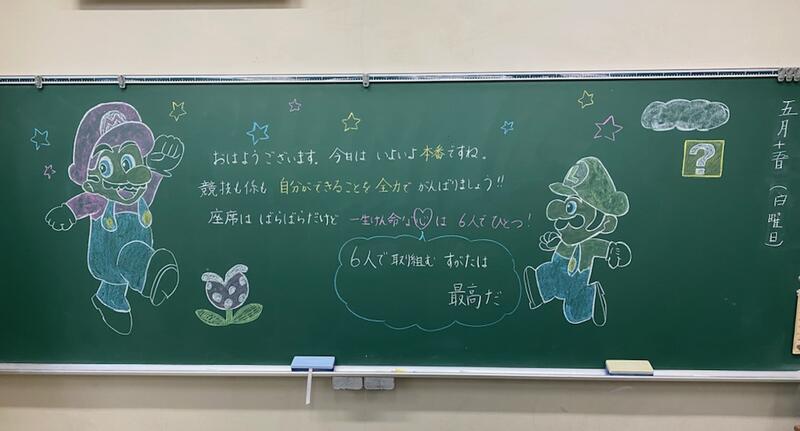 おはようございます。今日は いよいよ本番ですね。
競技も係も 自分ができることを 全力で がんばりましょう!!
座席は ばらばらだけど 一生けん命な心は 6人でひとつ!
6人で取り組む すがたは
最高だ
五月十五日 (日曜日)
M
L
?